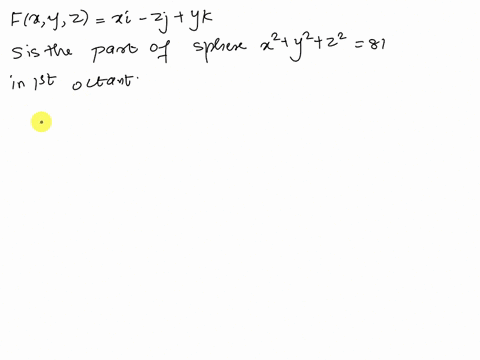 F(x,y,z) = xi - zj + yk
S is the part of sphere x²+y²+z² = 81
in 1st octant.